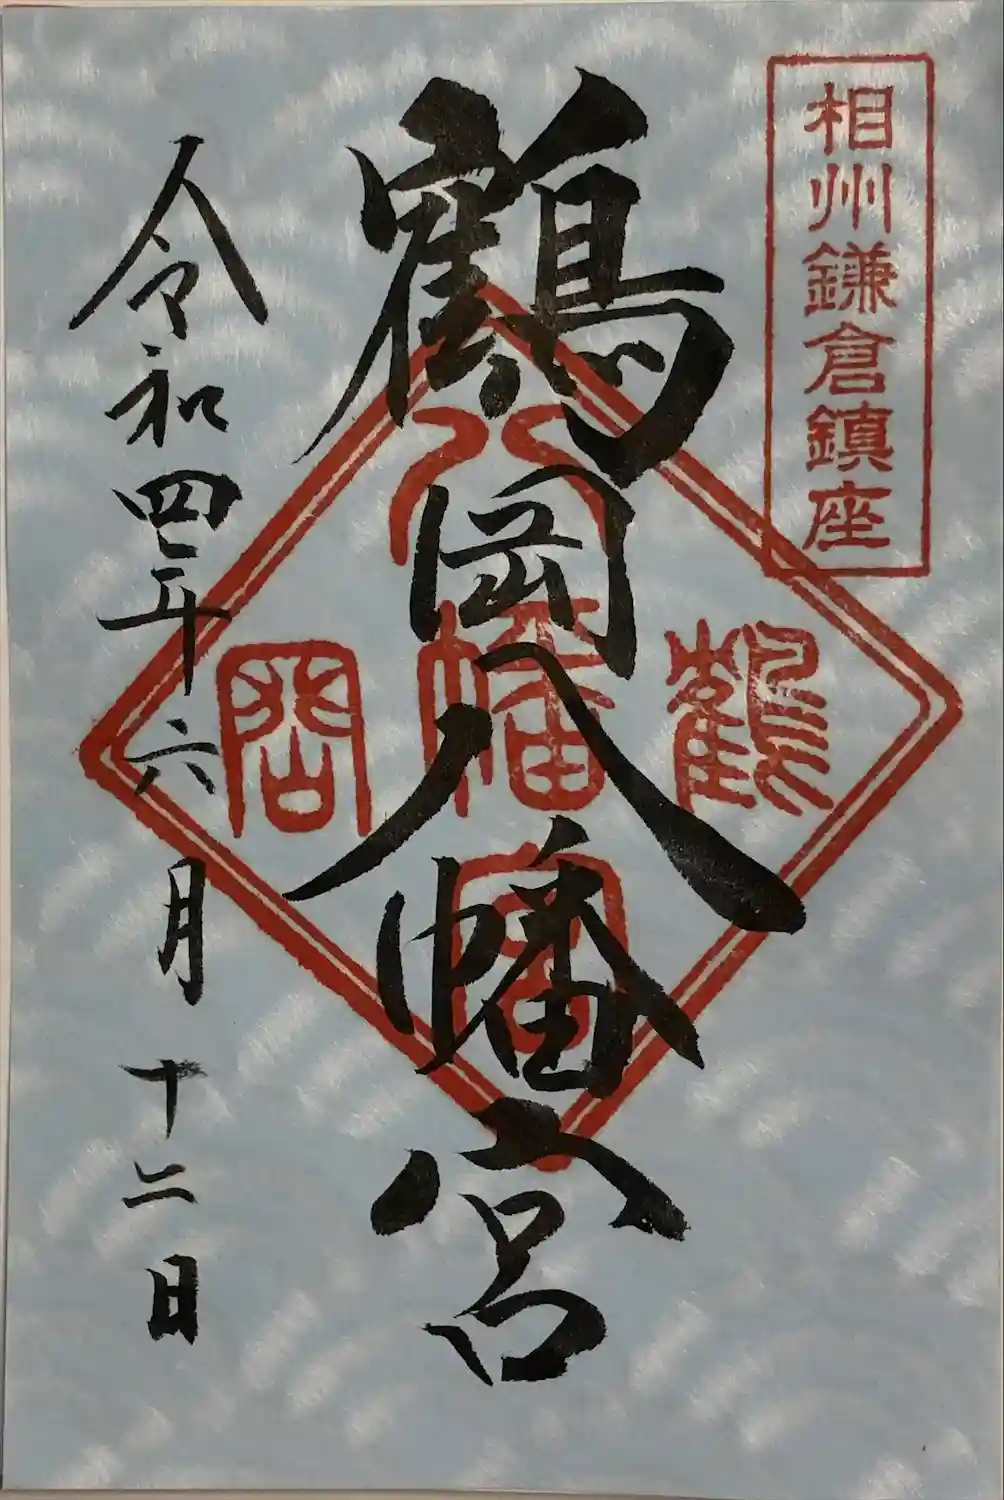 相州鎌倉鎮座
鶴岡八幡宮
八
鶴幡岡
宮
令和四年六月十二日